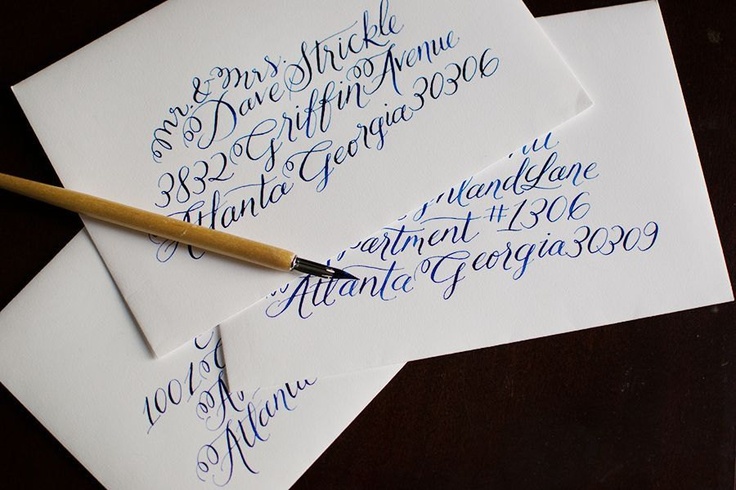 Mr. & Mrs.
Dave Strickle
3832 Griffin Avenue
Atlanta Georgia 30306
Lane
#1306
Atlanta Georgia 30309
1001
Atlanta